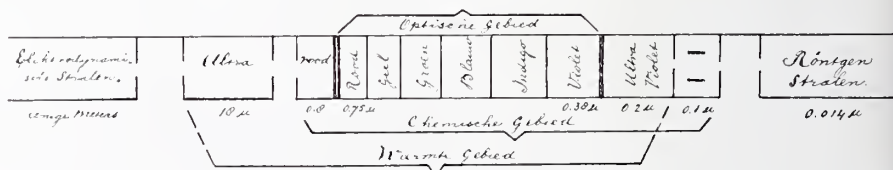 Optische Gebied
Elektrodynami-
sche Stralen.
Ultra
rood
Rood
Geel
Groen
Blauw
Indigo
Violet
Ultra
Violet
Röntgen
Stralen.
eenige Meters
18 µ
0.8
0.75 µ
0.38 µ
0.2 µ
0.1 µ
0.014 µ
Chemische Gebied
Warmte Gebied